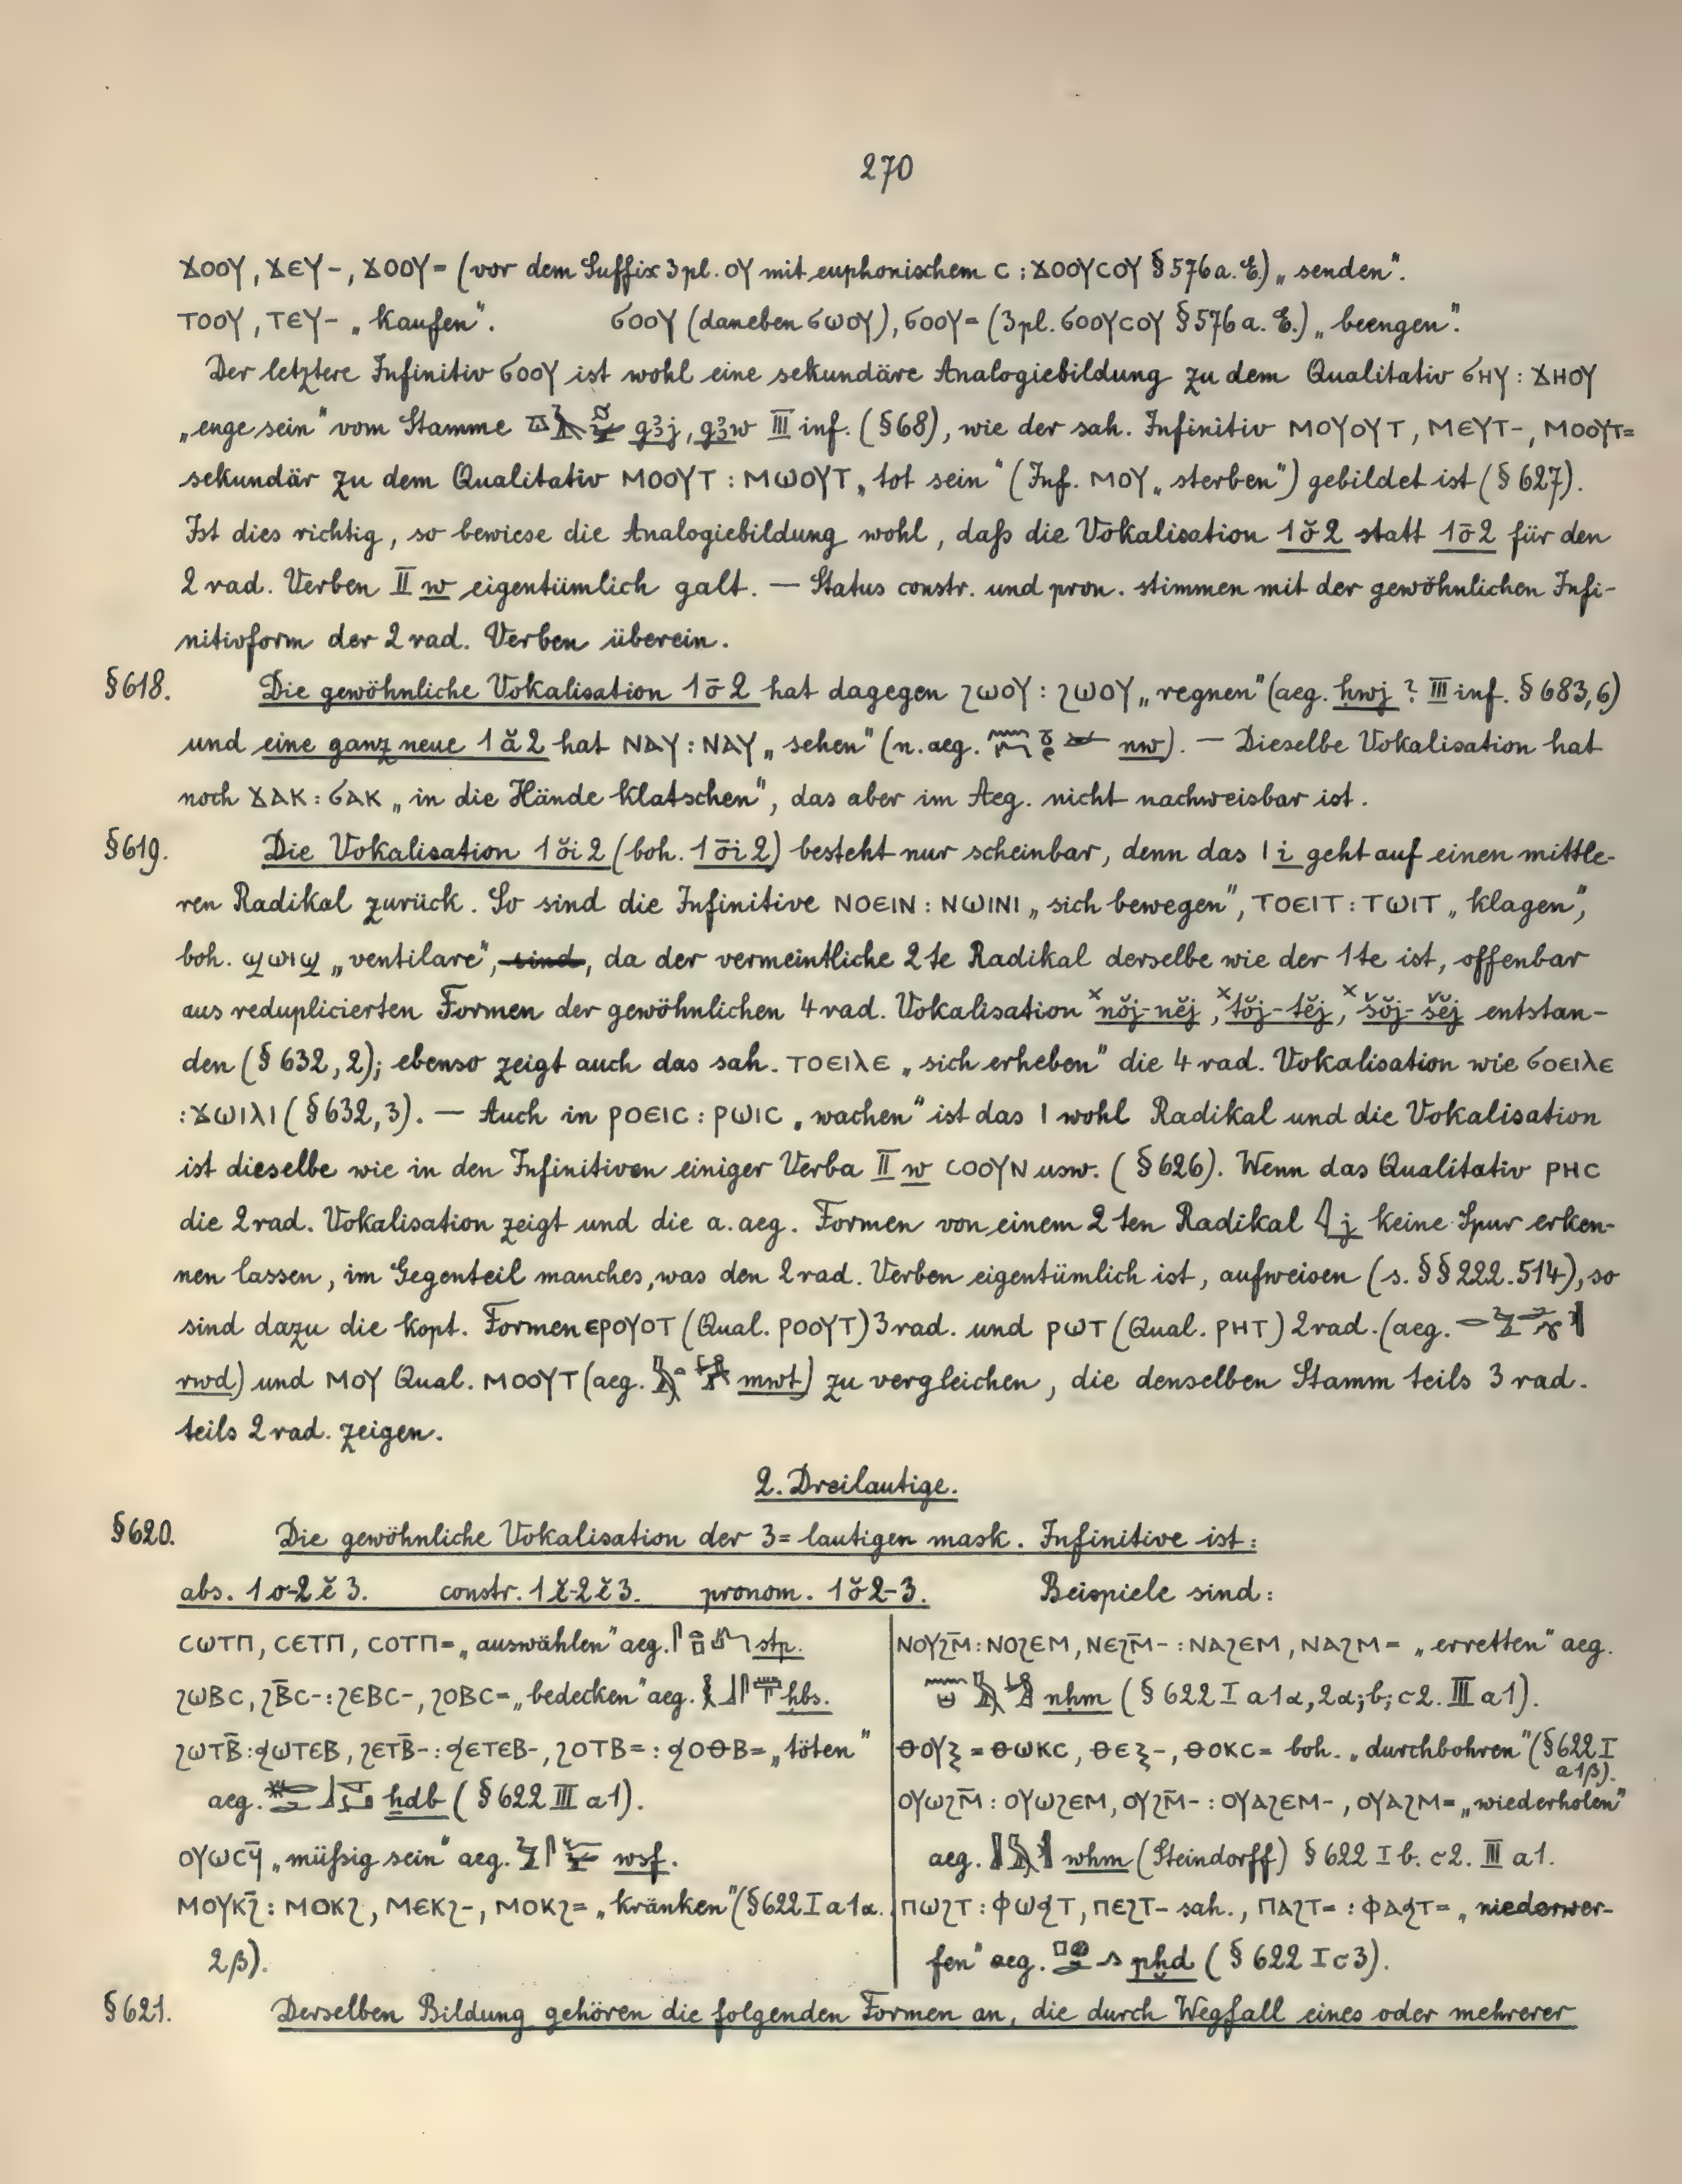 270
ϫⲟⲟⲩ, ϫⲉⲩ-, ϫⲟⲟⲩ= (vor dem Suffix 3 pl. ⲟⲩ mit euphonischem ⲥ : ϫⲟⲟⲩⲥⲟⲩ § 576 a. E.) „senden“.
ⲧⲟⲟⲩ, ⲧⲉⲩ- „kaufen“. ϭⲟⲟⲩ (daneben ϭⲱⲟⲩ), ϭⲟⲟⲩ= (3 pl. ϭⲟⲟⲩⲥⲟⲩ § 576 a. E.) „beengen“.
Der letztere Infinitiv ϭⲟⲟⲩ ist wohl eine sekundäre Analogiebildung zu dem Qualitativ ϭⲏⲩ : ϫⲏⲟⲩ
„enge sein“ vom Stamme gꜣj, gꜣw III inf. (§ 68), wie der sah. Infinitiv ⲙⲟⲩⲟⲩⲧ, ⲙⲉⲩⲧ-, ⲙⲟⲟⲩⲧ=
sekundär zu dem Qualitativ ⲙⲟⲟⲩⲧ : ⲙⲱⲟⲩⲧ „tot sein“ (Inf. ⲙⲟⲩ „sterben“) gebildet ist (§ 627).
Ist dies richtig, so bewiese die Analogiebildung wohl, daß die Vokalisation 1ŏ2 statt 1ō2 für den
2 rad. Verben II w eigentümlich galt. — Status constr. und pron. stimmen mit der gewöhnlichen Infi-
nitivform der 2 rad. Verben überein.
§ 618. Die gewöhnliche Vokalisation 1ō2 hat dagegen ϩⲱⲟⲩ : ϩⲱⲟⲩ „regnen“ (aeg. ḥwj ? III inf. § 683,6)
und eine ganz neue 1ă2 hat ⲛⲁⲩ : ⲛⲁⲩ „sehen“ (n. aeg. nw). — Dieselbe Vokalisation hat
noch ϫⲁⲕ : ϭⲁⲕ „in die Hände klatschen“, das aber im Aeg. nicht nachweisbar ist.
§ 619. Die Vokalisation 1ŏi2 (boh. 1ōi2) besteht nur scheinbar, denn das ⲓ i geht auf einen mittle-
ren Radikal zurück. So sind die Infinitive ⲛⲟⲉⲓⲛ : ⲛⲱⲓⲛⲓ „sich bewegen“, ⲧⲟⲉⲓⲧ : ⲧⲱⲓⲧ „klagen“,
boh. ϣⲱⲓϣ „ventilare“, sind, da der vermeintliche 2te Radikal derselbe wie der 1te ist, offenbar
aus reduplicierten Formen der gewöhnlichen 4 rad. Vokalisation ×nŏj-nĕj, ×tŏj-tĕj, ×šŏj-šĕj entstan-
den (§ 632, 2); ebenso zeigt auch das sah. ⲧⲟⲉⲓⲗⲉ „sich erheben“ die 4 rad. Vokalisation wie ϭⲟⲉⲓⲗⲉ
: ϫⲱⲓⲗⲓ (§ 632, 3). — Auch in ⲣⲟⲉⲓⲥ : ⲣⲱⲓⲥ „wachen“ ist das ⲓ wohl Radikal und die Vokalisation
ist dieselbe wie in den Infinitiven einiger Verba II w ⲥⲟⲟⲩⲛ usw. (§ 626). Wenn das Qualitativ ⲣⲏⲥ
die 2 rad. Vokalisation zeigt und die a. aeg. Formen von einem 2ten Radikal 𓇋 j keine Spur erken-
nen lassen, im Gegenteil manches, was den 2 rad. Verben eigentümlich ist, aufweisen (s. §§ 222. 514), so
sind dazu die kopt. Formen ⲉⲣⲟⲩⲟⲧ (Qual. ⲣⲟⲟⲩⲧ) 3 rad. und ⲣⲱⲧ (Qual. ⲣⲏⲧ) 2 rad. (aeg.
rwd) und ⲙⲟⲩ Qual. ⲙⲟⲟⲩⲧ (aeg. mwt) zu vergleichen, die denselben Stamm teils 3 rad.
teils 2 rad. zeigen.
2. Dreilautige.
§ 620. Die gewöhnliche Vokalisation der 3=lautigen mask. Infinitive ist:
abs. 1o-2ĕ3. constr. 1ĕ-2ĕ3. pronom. 1ŏ2-3. Beispiele sind:
ⲥⲱⲧⲡ, ⲥⲉⲧⲡ, ⲥⲟⲧⲡ= „auswählen“ aeg. stp.
ϩⲱⲃⲥ, ϩⲃ̄ⲥ- : ϩⲉⲃⲥ-, ϩⲟⲃⲥ= „bedecken“ aeg. ḥbs.
ϩⲱⲧⲃ̄ : ϧⲱⲧⲉⲃ, ϩⲉⲧⲃ̄- : ϧⲉⲧⲉⲃ-, ϩⲟⲧⲃ= : ϧⲟⲑⲃ= „töten“
aeg. ḫdb (§ 622 III a1).
ⲟⲩⲱⲥϥ̄ „müßig sein“ aeg. wsf.
ⲙⲟⲩⲕϩ̄ : ⲙⲟⲕϩ, ⲙⲉⲕϩ-, ⲙⲟⲕϩ= „kränken“ (§ 622 I a1α.
2β).
ⲛⲟⲩϩⲙ̄ : ⲛⲟϩⲉⲙ, ⲛⲉϩⲙ̄- : ⲛⲁϩⲉⲙ, ⲛⲁϩⲙ= „erretten“ aeg.
nḥm (§ 622 I a1α, 2α; b; c2. III a1).
ⲑⲟⲩⲝ = ⲑⲱⲕⲥ, ⲑⲉⲝ-, ⲑⲟⲕⲥ= boh. „durchbohren“ (§ 622 I
a1β).
ⲟⲩⲱϩⲙ̄ : ⲟⲩⲱϩⲉⲙ, ⲟⲩϩⲙ̄- : ⲟⲩⲁϩⲉⲙ-, ⲟⲩⲁϩⲙ= „wiederholen“
aeg. whm (Steindorff) § 622 I b. c2. III a1.
ⲡⲱϩⲧ : ⲫⲱϧⲧ, ⲡⲉϩⲧ- sah., ⲡⲁϩⲧ= : ⲫⲁϧⲧ= „niederwer-
fen“ aeg. pḫd (§ 622 I c3).
§ 621. Derselben Bildung gehören die folgenden Formen an, die durch Wegfall eines oder mehrerer